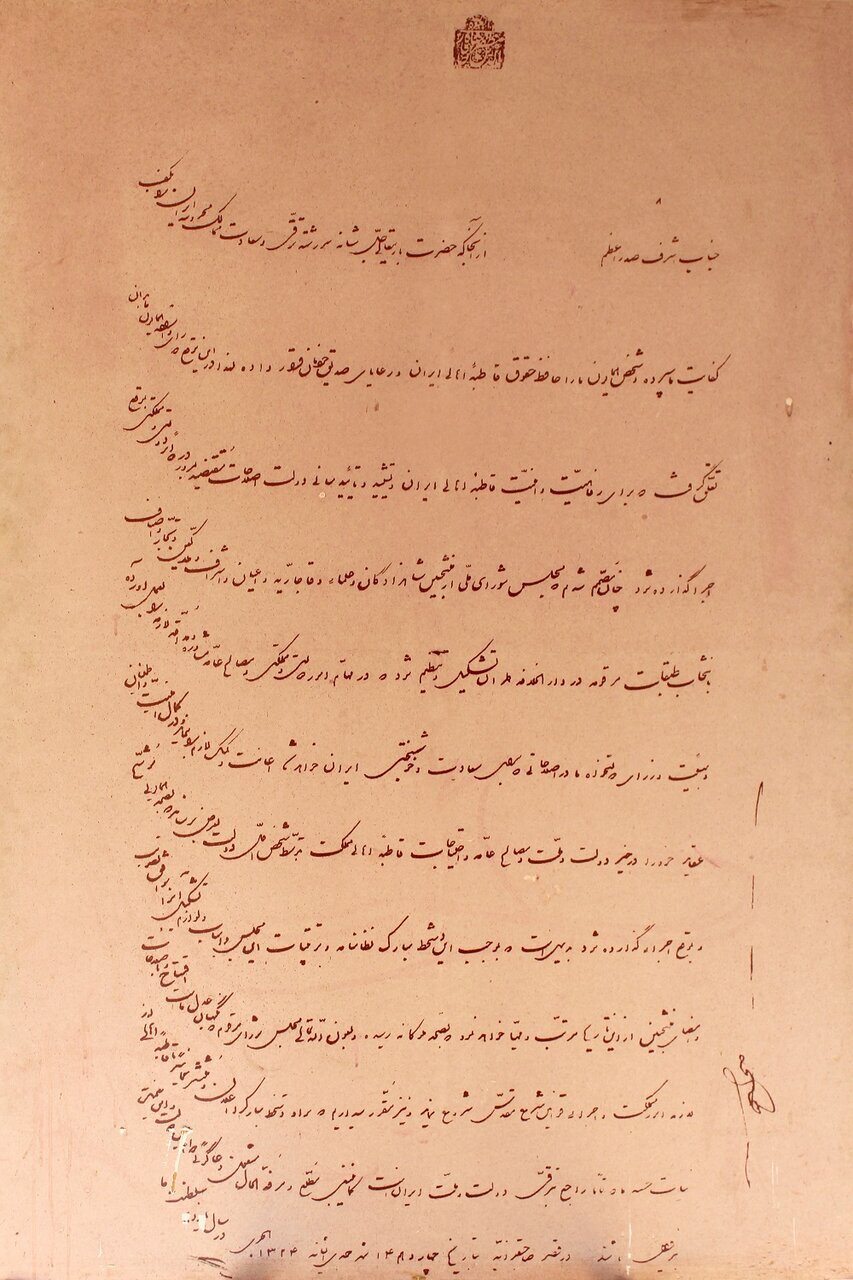 جناب اشرف صدراعظم از آنجا که حضرت باریتعالی جل شأنه سررشته ترقی و سعادت ممالک محروسه ایران را بکف
کفایت ما سپرده و شخص همایون ما را حافظ حقوق قاطبهٔ اهالی ایران و رعایای صدیق خودمان قرار داده لهذا در این موقع که رای و اراده همایون ما بدان
تعلق گرفت که برای رفاهیت و امنیت قاطبه اهالی ایران و تشیید و تأیید مبانی دولت اصلاحات مقتضیه بمرور در دوایر دولتی و مملکتی بموقع
اجرا گذارده شود چنان مصمم شدیم که مجلس شورای ملی از منتخبین شاهزادگان و علماء و قاجاریه و اعیان و اشراف و ملاکین و تجار و اصناف
بانتخاب طبقات مرقومه در دارالخلافه طهران تشکیل و تنظیم شود که در مهام امور دولتی و مملکتی و مصالح عامه مشاوره و مداقه لازمه را بعمل آورده
و بهیئت وزرای دولتخواه ما در اصلاحاتی که برای سعادت و خوشبختی ایران خواهد شد اعانت و کمک لازم را بنماید و در کمال امنیت و اطمینان
عقاید خود را در خیر دولت و ملت و مصالح عامه و احتیاجات قاطبهٔ اهالی مملکت بتوسط شخص اول دولت بعرض برساند که بصحه همایونی موشح
و بموقع اجرا گذارده شود بدیهی است که بموجب این دستخط مبارک نظامنامه و ترتیبات این مجلس و اسباب و لوازم تشکیل آنرا موافق تصویب
و امضای منتخبین از این تاریخ مرتب و مهیا خواهد نمود که بصحه ملوکانه رسیده و بعون الله تعالی مجلس شورای مرقوم که نگهبان عدل ماست افتتاح و باصلاحات
لازمه امور مملکت و اجراء قوانین شرع مقدس شروع نماید و نیز مقرر میداریم که سواد دستخط مبارک را اعلان و منتشر نمایید تا قاطبهٔ اهالی از
نیات حسنه ما که تماماً راجع بترقی دولت و ملت ایران است کماینبغی مطلع و مرفه الحال مشغول دعاگوئی دوام این دولت و این نعمت
بی زوال باشند در قصر صاحبقرانیه بتاریخ چهاردهم شهر جمادی الثانیه ۱۳۲۴ هجری در سال یازدهم سلطنت ما